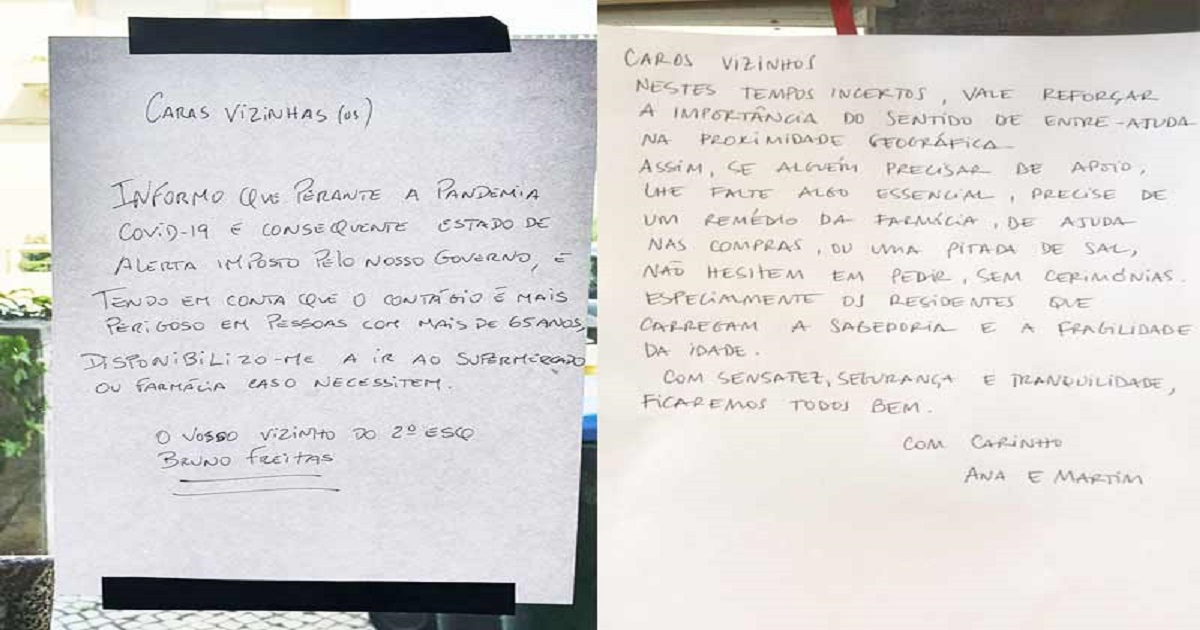 CARAS VIZINHAS (OS)
INFORMO QUE PERANTE A PANDEMIA
COVID-19 E CONSEQUENTE ESTADO DE
ALERTA IMPOSTO PELO NOSSO GOVERNO, E
TENDO EM CONTA QUE O CONTÁGIO É MAIS
PERIGOSO EM PESSOAS COM MAIS DE 65 ANOS,
DISPONIBILIZO-ME A IR AO SUPERMERCADO
OU FARMÁCIA CASO NECESSITEM.
O VOSSO VIZINHO DO 2º ESQ
BRUNO FREITAS
CAROS VIZINHOS
NESTES TEMPOS INCERTOS, VALE REFORÇAR
A IMPORTÂNCIA DO SENTIDO DE ENTRE-AJUDA
NA PROXIMIDADE GEOGRÁFICA.
ASSIM, SE ALGUÉM PRECISAR DE APOIO,
LHE FALTE ALGO ESSENCIAL, PRECISE DE
UM REMÉDIO DA FARMÁCIA, DE AJUDA
NAS COMPRAS, OU UMA PITADA DE SAL,
NÃO HESITEM EM PEDIR, SEM CERIMÓNIAS.
ESPECIALMENTE OS RESIDENTES QUE
CARREGAM A SABEDORIA E A FRAGILIDADE
DA IDADE.
COM SENSATEZ, SEGURANÇA E TRANQUILIDADE,
FICAREMOS TODOS BEM.
COM CARINHO
ANA E MARTIM